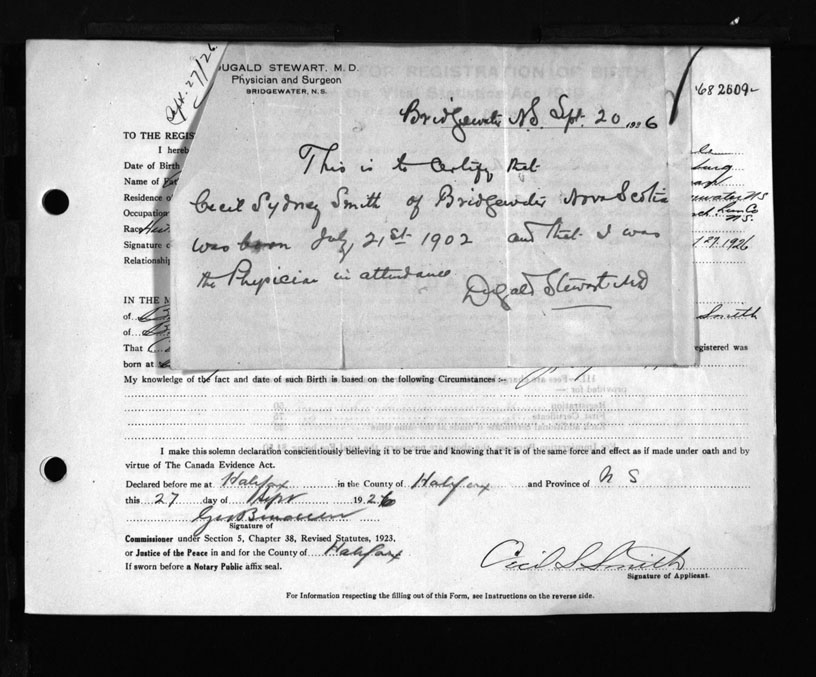 Sept. 27/26
DUGALD STEWART, M. D.
Physician and Surgeon
BRIDGEWATER, N.S.
'68 2509-
Bridgewater N.S. Sept. 20 1926
This is to Certify that
Cecil Sydney Smith of Bridgewater Nova Scotia
was born July 21st 1902 and that I was
the Physician in attendance
Dugald Stewart MD
TO THE REGIS
I hereb
Date of Birth
Name of Fat
Residence o
N S
Occupation
N.S.
Race
Signature o
27. 1926
Relationship
IN THE M
of
Smith
of
That
registered was
born at
My knowledge of the fact and date of such Birth is based on the following Circumstances :-
I make this solemn declaration conscientiously believing it to be true and knowing that it is of the same force and effect as if made under oath and by
virtue of The Canada Evidence Act.
Declared before me at Halifax in the County of Halifax and Province of N S
this 27 day of Sept 1926
Signature of
Commissioner under Section 5, Chapter 38, Revised Statutes, 1923,
or Justice of the Peace in and for the County of Halifax
If sworn before a Notary Public affix seal.
Cecil S Smith
Signature of Applicant.
For Information respecting the filling out of this Form, see Instructions on the reverse side.